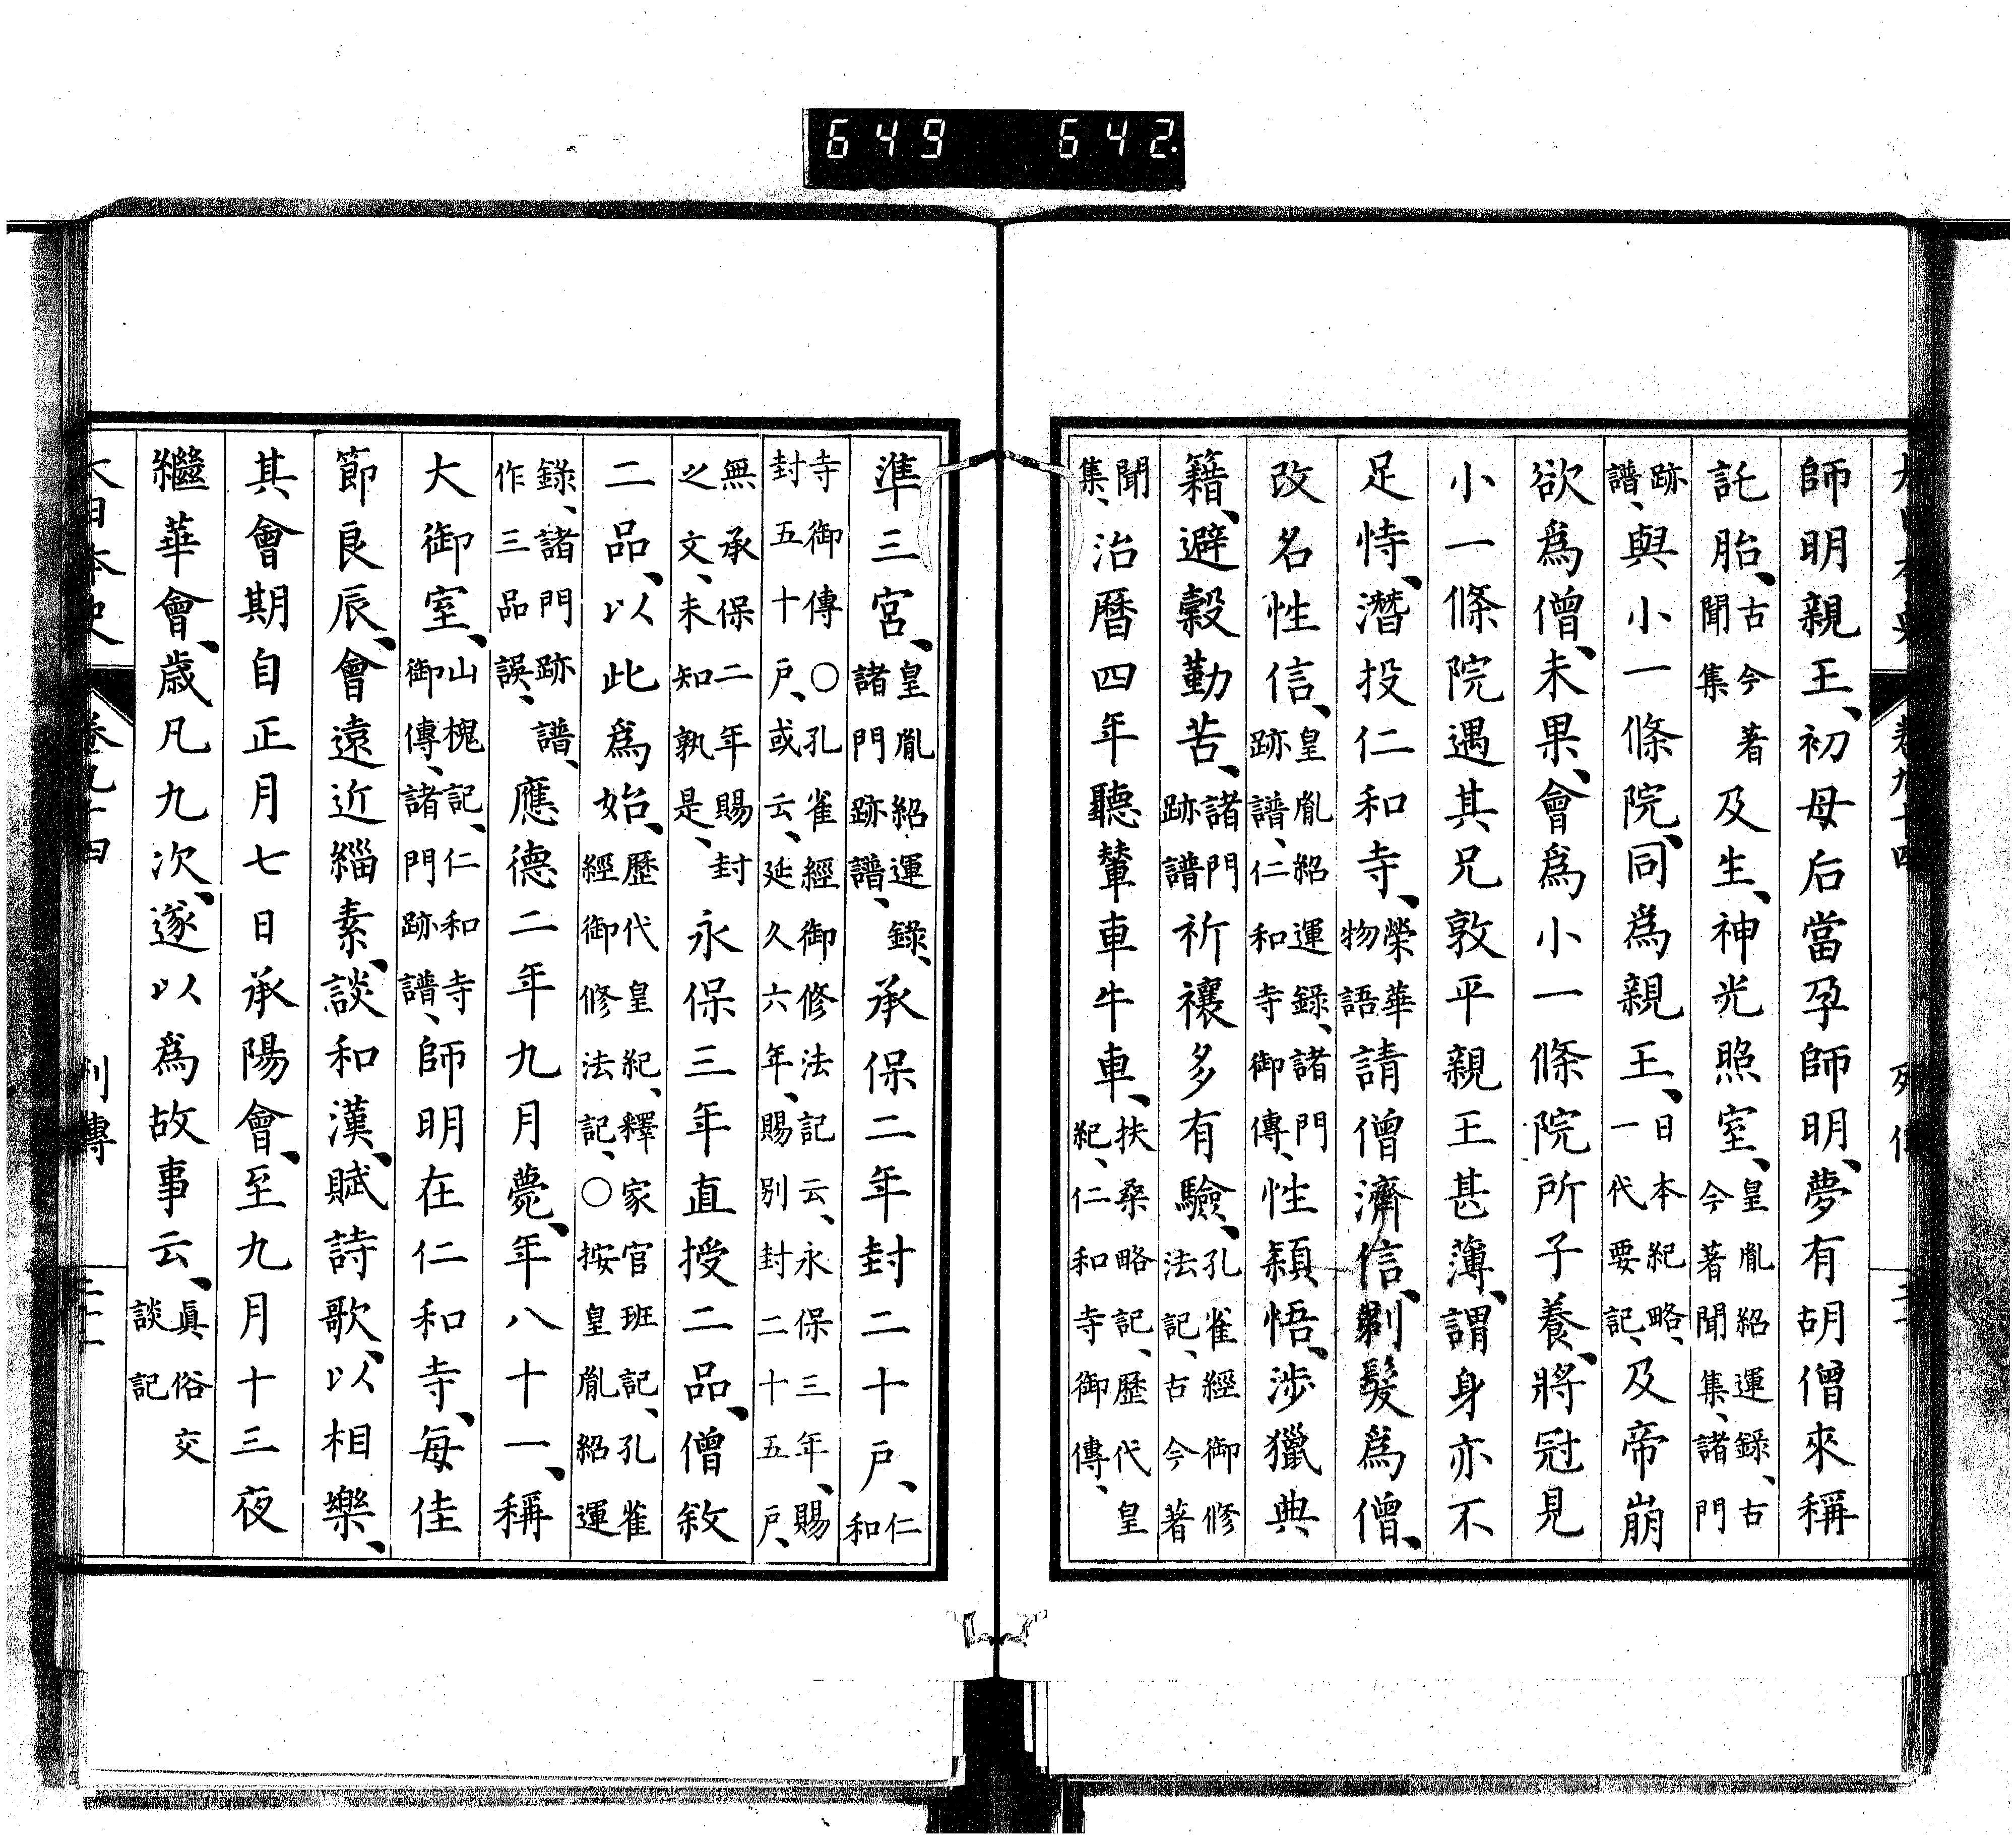 649 642
師明親王、初母后當孕師明、夢有胡僧來稱
託胎、古今著聞集及生、神光照室、皇胤紹運錄、古今著聞集、諸門
跡譜、與小一條院、同爲親王、日本紀略、一代要記、及帝崩
欲爲僧、未果、會爲小一條院所子養、將冠見
小一條院遇其兄敦平親王甚薄、謂身亦不
足恃、潛投仁和寺、榮華物語請僧濟信、剃髮爲僧、
改名性信、皇胤紹運錄、諸門跡譜、仁和寺御傳、性穎悟、涉獵典
籍、避穀勤苦、諸門跡譜祈禳多有驗、孔雀經御修法記、古今著
聞集、治曆四年聽輦車牛車、扶桑略記、歷代皇紀、仁和寺御傳、
準三宮、皇胤紹運錄、諸門跡譜、承保二年封二十戶、仁和
寺御傳○孔雀經御修法記云、永保三年、賜封五十戶、或云、延久六年、賜別封二十五戶、
無承保二年賜封之文、未知孰是、永保三年直授二品、僧敘
二品、以此爲始、歷代皇紀、釋家官班記、孔雀經御修法記、○按皇胤紹運
錄、諸門跡譜、作三品誤、應德二年九月薨、年八十一、稱
大御室、山槐記、仁和寺御傳、諸門跡譜、師明在仁和寺、每佳
節良辰、會遠近緇素、談和漢、賦詩歌、以相樂、
其會期自正月七日承陽會、至九月十三夜
繼華會、歲凡九次、遂以爲故事云、眞俗交談記
大日本史 卷九十四 列傳